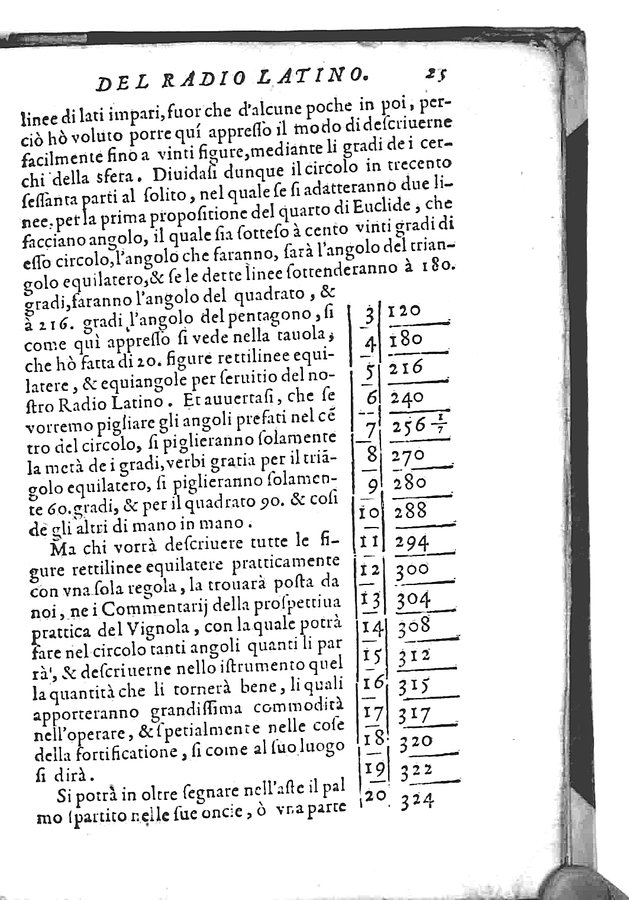 DEL RADIO LATINO. 25
linee di lati impari, fuor che d'alcune poche in poi, per-
ciò hò voluto porre quí appreſſo il modo di deſcriuerne
facilmente fino a vinti figure, mediante li gradi de i cer-
chi della sfera. Diuidaſi dunque il circolo in trecento
ſeſſanta parti al ſolito, nel quale ſe ſi adatteranno due li-
nee, per la prima propoſitione del quarto di Euclide, che
facciano angolo, il quale ſia ſotteſo à cento vinti gradi di
eſſo circolo, l'angolo che faranno, ſarà l'angolo del trian-
golo equilatero, & ſe le dette linee ſottenderanno à 180.
gradi, faranno l'angolo del quadrato, &
à 216. gradi l'angolo del pentagono, ſi
come quì appreſſo ſi vede nella tauola,
che hò fatta di 20. figure rettilinee equi-
latere, & equiangole per ſeruitio del no-
ſtro Radio Latino. Et auuertaſi, che ſe
vorremo pigliare gli angoli prefati nel cẽ
tro del circolo, ſi piglieranno ſolamente
la metà de i gradi, verbi gratia per il triã-
golo equilatero, ſi piglieranno ſolamen-
te 60. gradi, & per il quadrato 90. & coſi
de gli altri di mano in mano.
Ma chi vorrà deſcriuere tutte le fi-
gure rettilinee equilatere pratticamente
con vna ſola regola, la trouarà poſta da
noi, ne i Commentarij della proſpettiua
prattica del Vignola, con la quale potrà
fare nel circolo tanti angoli quanti li par
rà, & deſcriuerne nello iſtrumento quel
la quantità che li tornerà bene, li quali
apporteranno grandiſſima commodità
nell'operare, & ſpetialmente nelle coſe
della fortificatione, ſi come al ſuo luogo
ſi dirà.
Si potrà in oltre ſegnare nell'aſte il pal
mo ſpartito nelle ſue oncie, ò vna parte
3 120
4 180
5 216
6 240
7 256 1/7
8 270
9 280
10 288
11 294
12 300
13 304
14 308
15 312
16 315
17 317
18 320
19 322
20 324